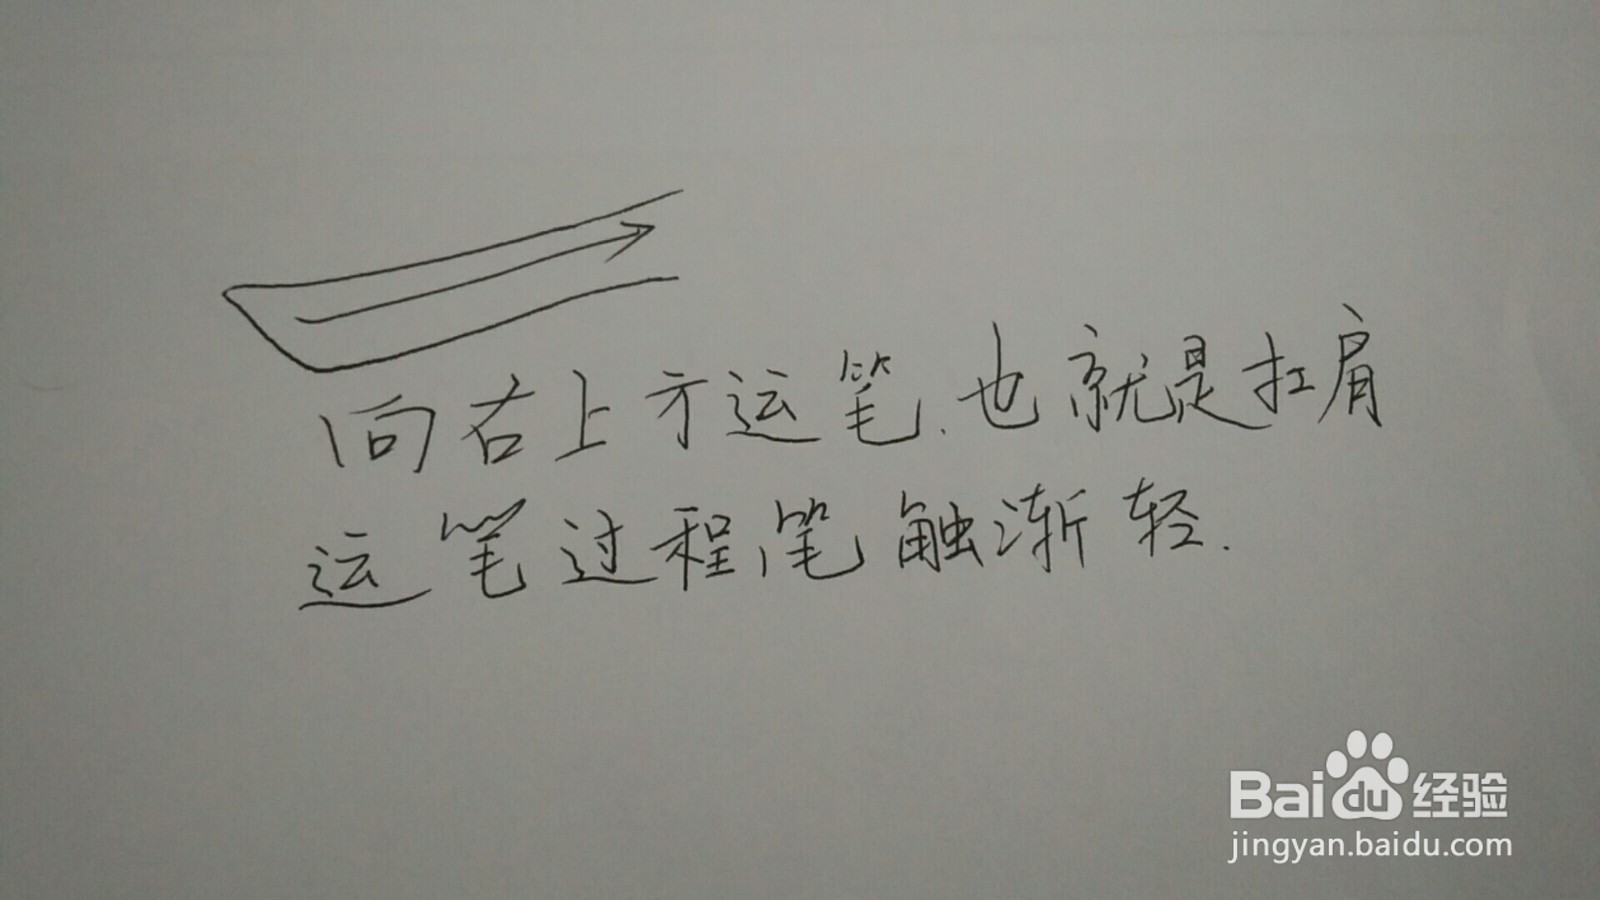 向右上方运笔.也就是扛肩
运笔过程笔触渐轻.
Bai du 经验
jingyan.baidu.com